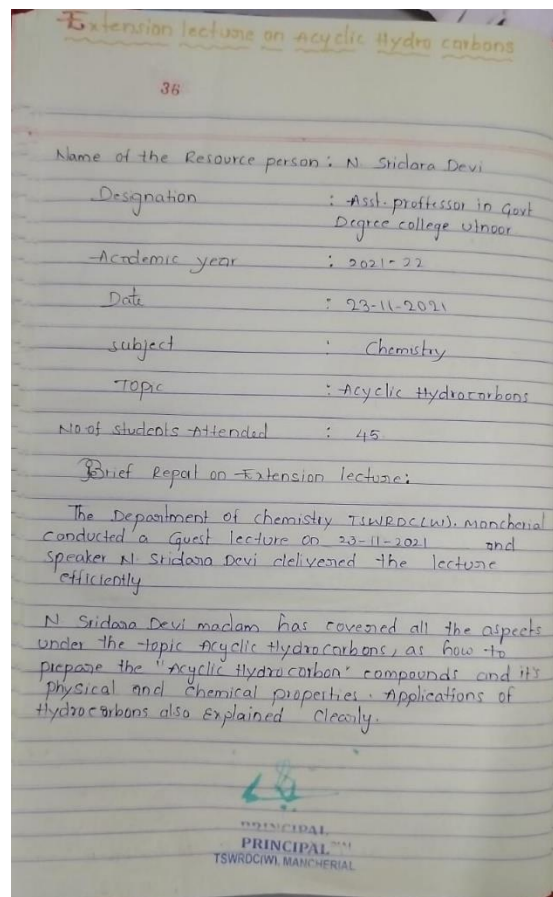 Extension lecture on Acyclic Hydro carbons
36
Name of the Resource person : N Sridara Devi
Designation : Asst. proffessor in Govt
Degree college Utnoor
Acadamic year : 2021-22
Date : 23-11-2021
subject : Chemistry
Topic : Acyclic Hydrocarbons
No of students Attended : 45
Brief Repal on Extension lecture:
The Department of chemistry TSWRDC(W). Mancherial
conducted a Guest lecture on 23-11-2021 and
speaker N. Sridara Devi delivered the lecture
efficiently
N Sridara Devi madam has covered all the aspects
under the topic Acyclic Hydrocarbons, as how to
prepare the "Acyclic Hydrocarbon" compounds and it's
physical and chemical properties. Applications of
Hydrocarbons also Explained Clearly.
PRINCIPAL
PRINCIPAL
TSWRDC(W), MANCHERIAL